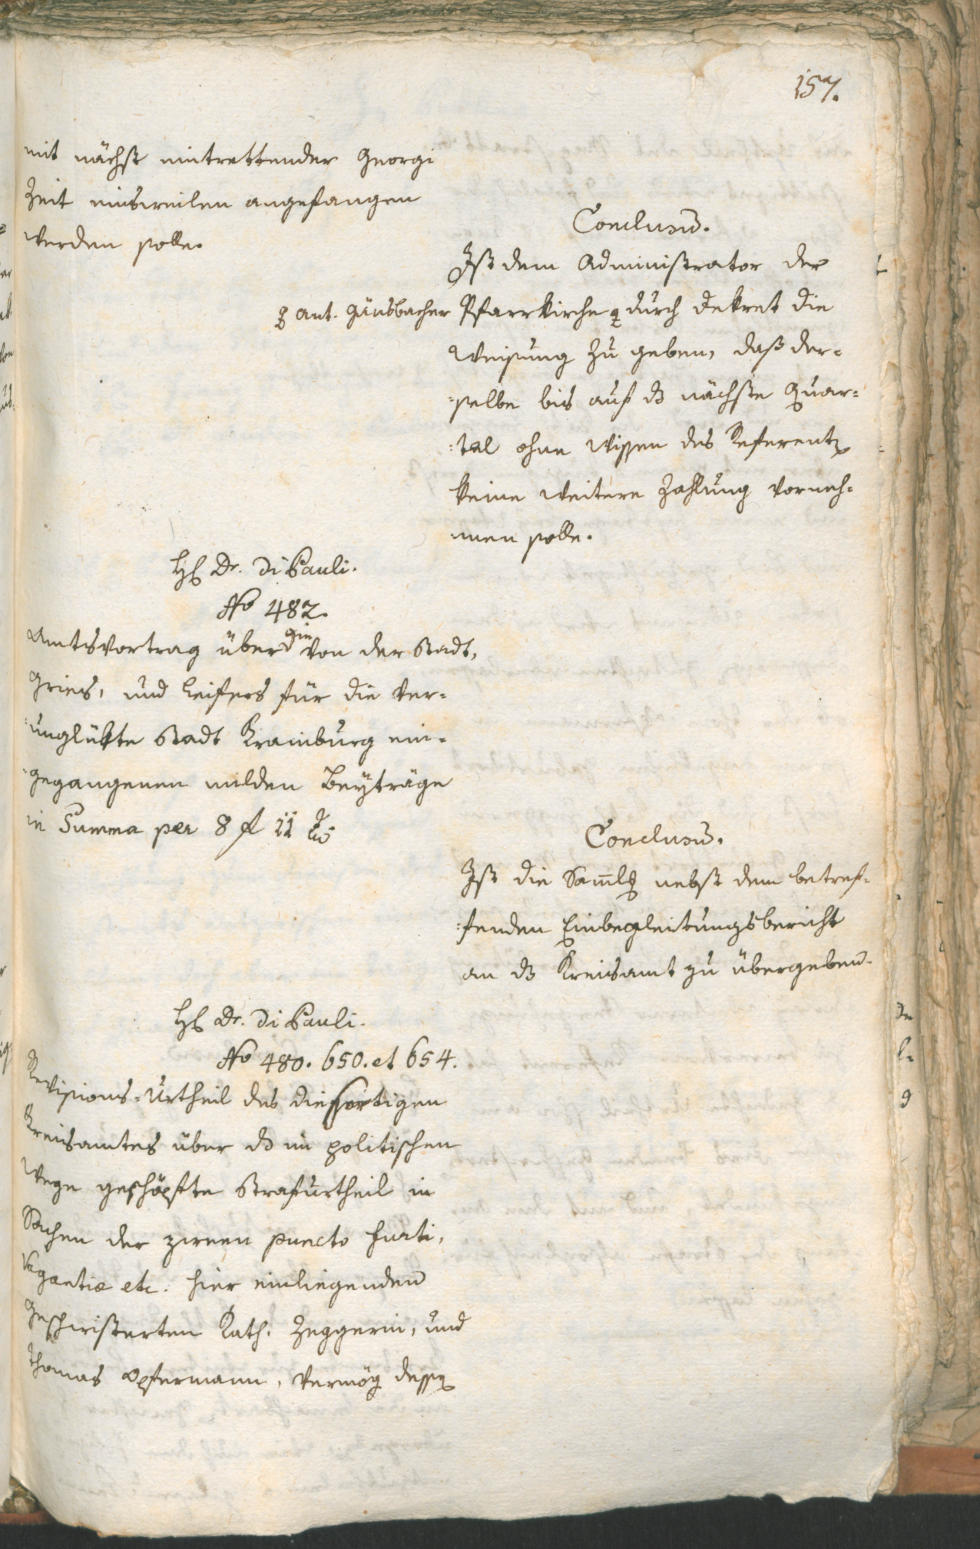 157.
mit nächst eintrettender Georgi
Zeit einsweilen angefangen
werden solle.
Conclusum.
Ist dem Administrator der
Pfarrkirche durch Dekret die
Ant. Gänsbacher
Weisung zu geben, daß der=
=selbe bis auf das nächste Quar=
=tal ohne Wissen des Referenten
keine weitere Zahlung vorneh=
men solle.
H. Dr. Di Pauli.
No 482.
Amtsvortrag über die von der Stadt,
Gries, und Leifers für die ver=
=unglükte Stadt Krainburg ein=
=gegangenen milden Beyträge
in Summa per 8 f 11 xr
Conclusum.
Ist die Sammlg nebst dem betref=
=fenden Einbegleitungsbericht
an das Kreisamt zu übergeben.
H. Dr. Di Pauli.
No 480. 650. et 654.
Revisions=Urtheil des diesortigen
Kreisamtes über das im politischen
Wege geschöpfte Strafurtheil in
Sachen der zween puncto furti,
Vagantiæ etc. hier einliegenden
Geschwisterten Kath. Zeggerin, und
Thomas Opfermann, vermög dessen